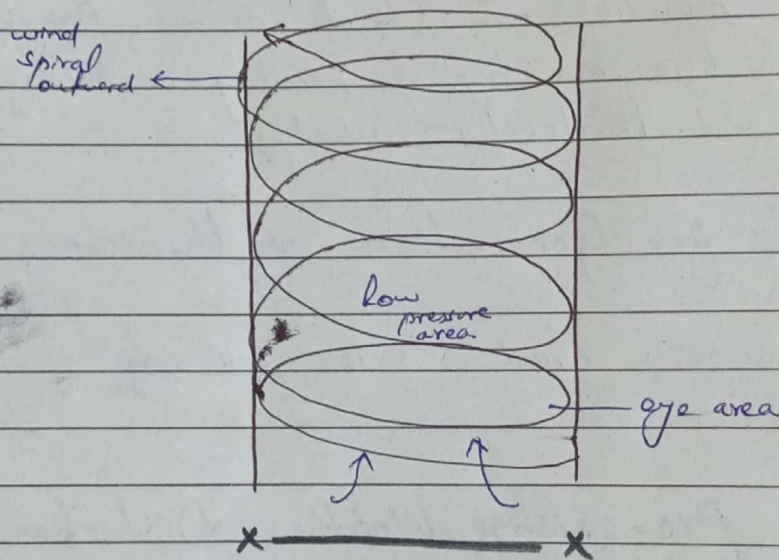 wind
spiral
outward
Low
pressure
area
eye area